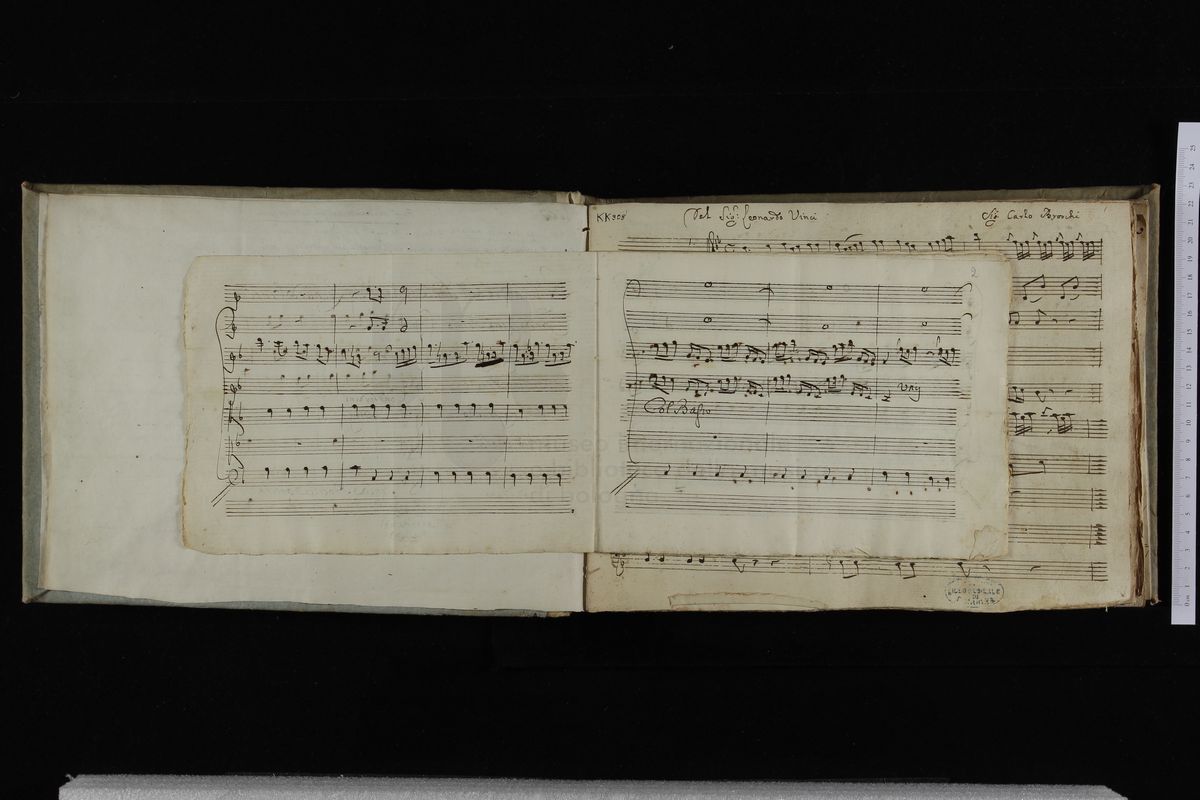 KK308 Del Sig.r Leonardo Vinci Sig Carlo Broschi
2
Uny
Col Basso